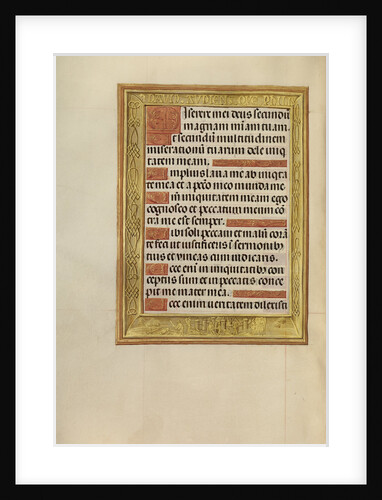 Miserere mei deus secundū
magnam mīam tuam.
Et secundū multitudinem
miserationū tuarum dele iniq
tatem meam.
Amplius laua me ab iniqita
te mea et a pctō meo munda me.
Qm̄ iniquitatem meam ego
cognosco et peccatum meum cō
tra me est semper.
Tibi soli peccaui et malū corā
te feci ut iustificeris ī sermonibꝰ
tuis et vincas cum iudicaris.
Ecce eni in iniquitatibꝰ con
ceptus sum et in peccatis conce
pit me mater mea.
Ecce enim ueritatem dilexisti